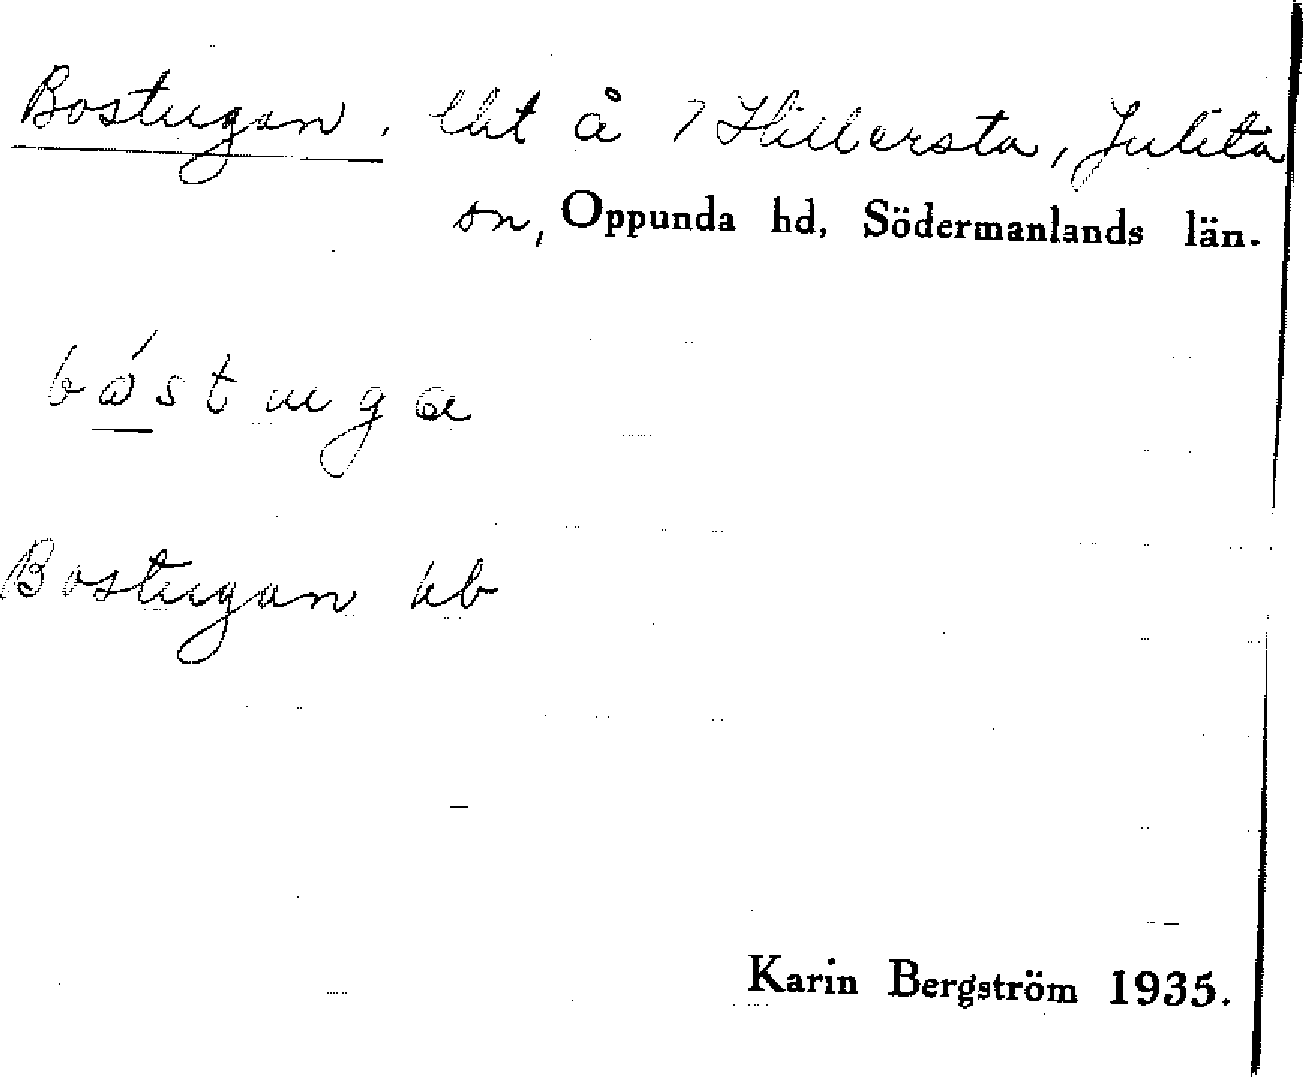 Bostugan, lht å 7 Hillersta, Julita
sn, Oppunda hd, Södermanlands län.
bó̲stuga
Bostugan hb
Karin Bergström 1935.